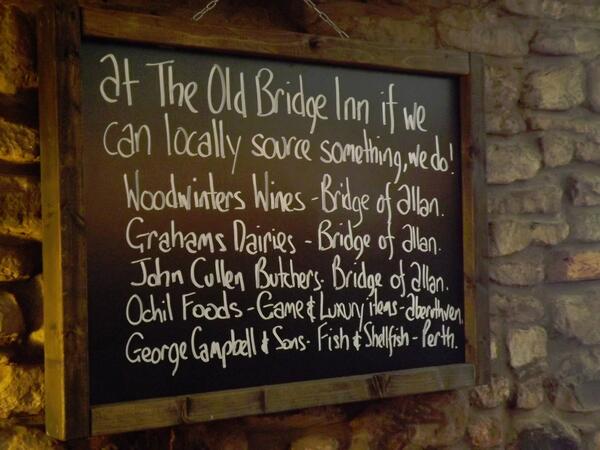 at The Old Bridge Inn if we
can locally source something, we do!
Woodwinters Wines - Bridge of allan.
Grahams Dairies - Bridge of allan.
John Cullen Butchers. Bridge of allan.
Ochil Foods - Game & Luxury items - aberuthven.
George Campbell & Sons - Fish & Shellfish - Perth.